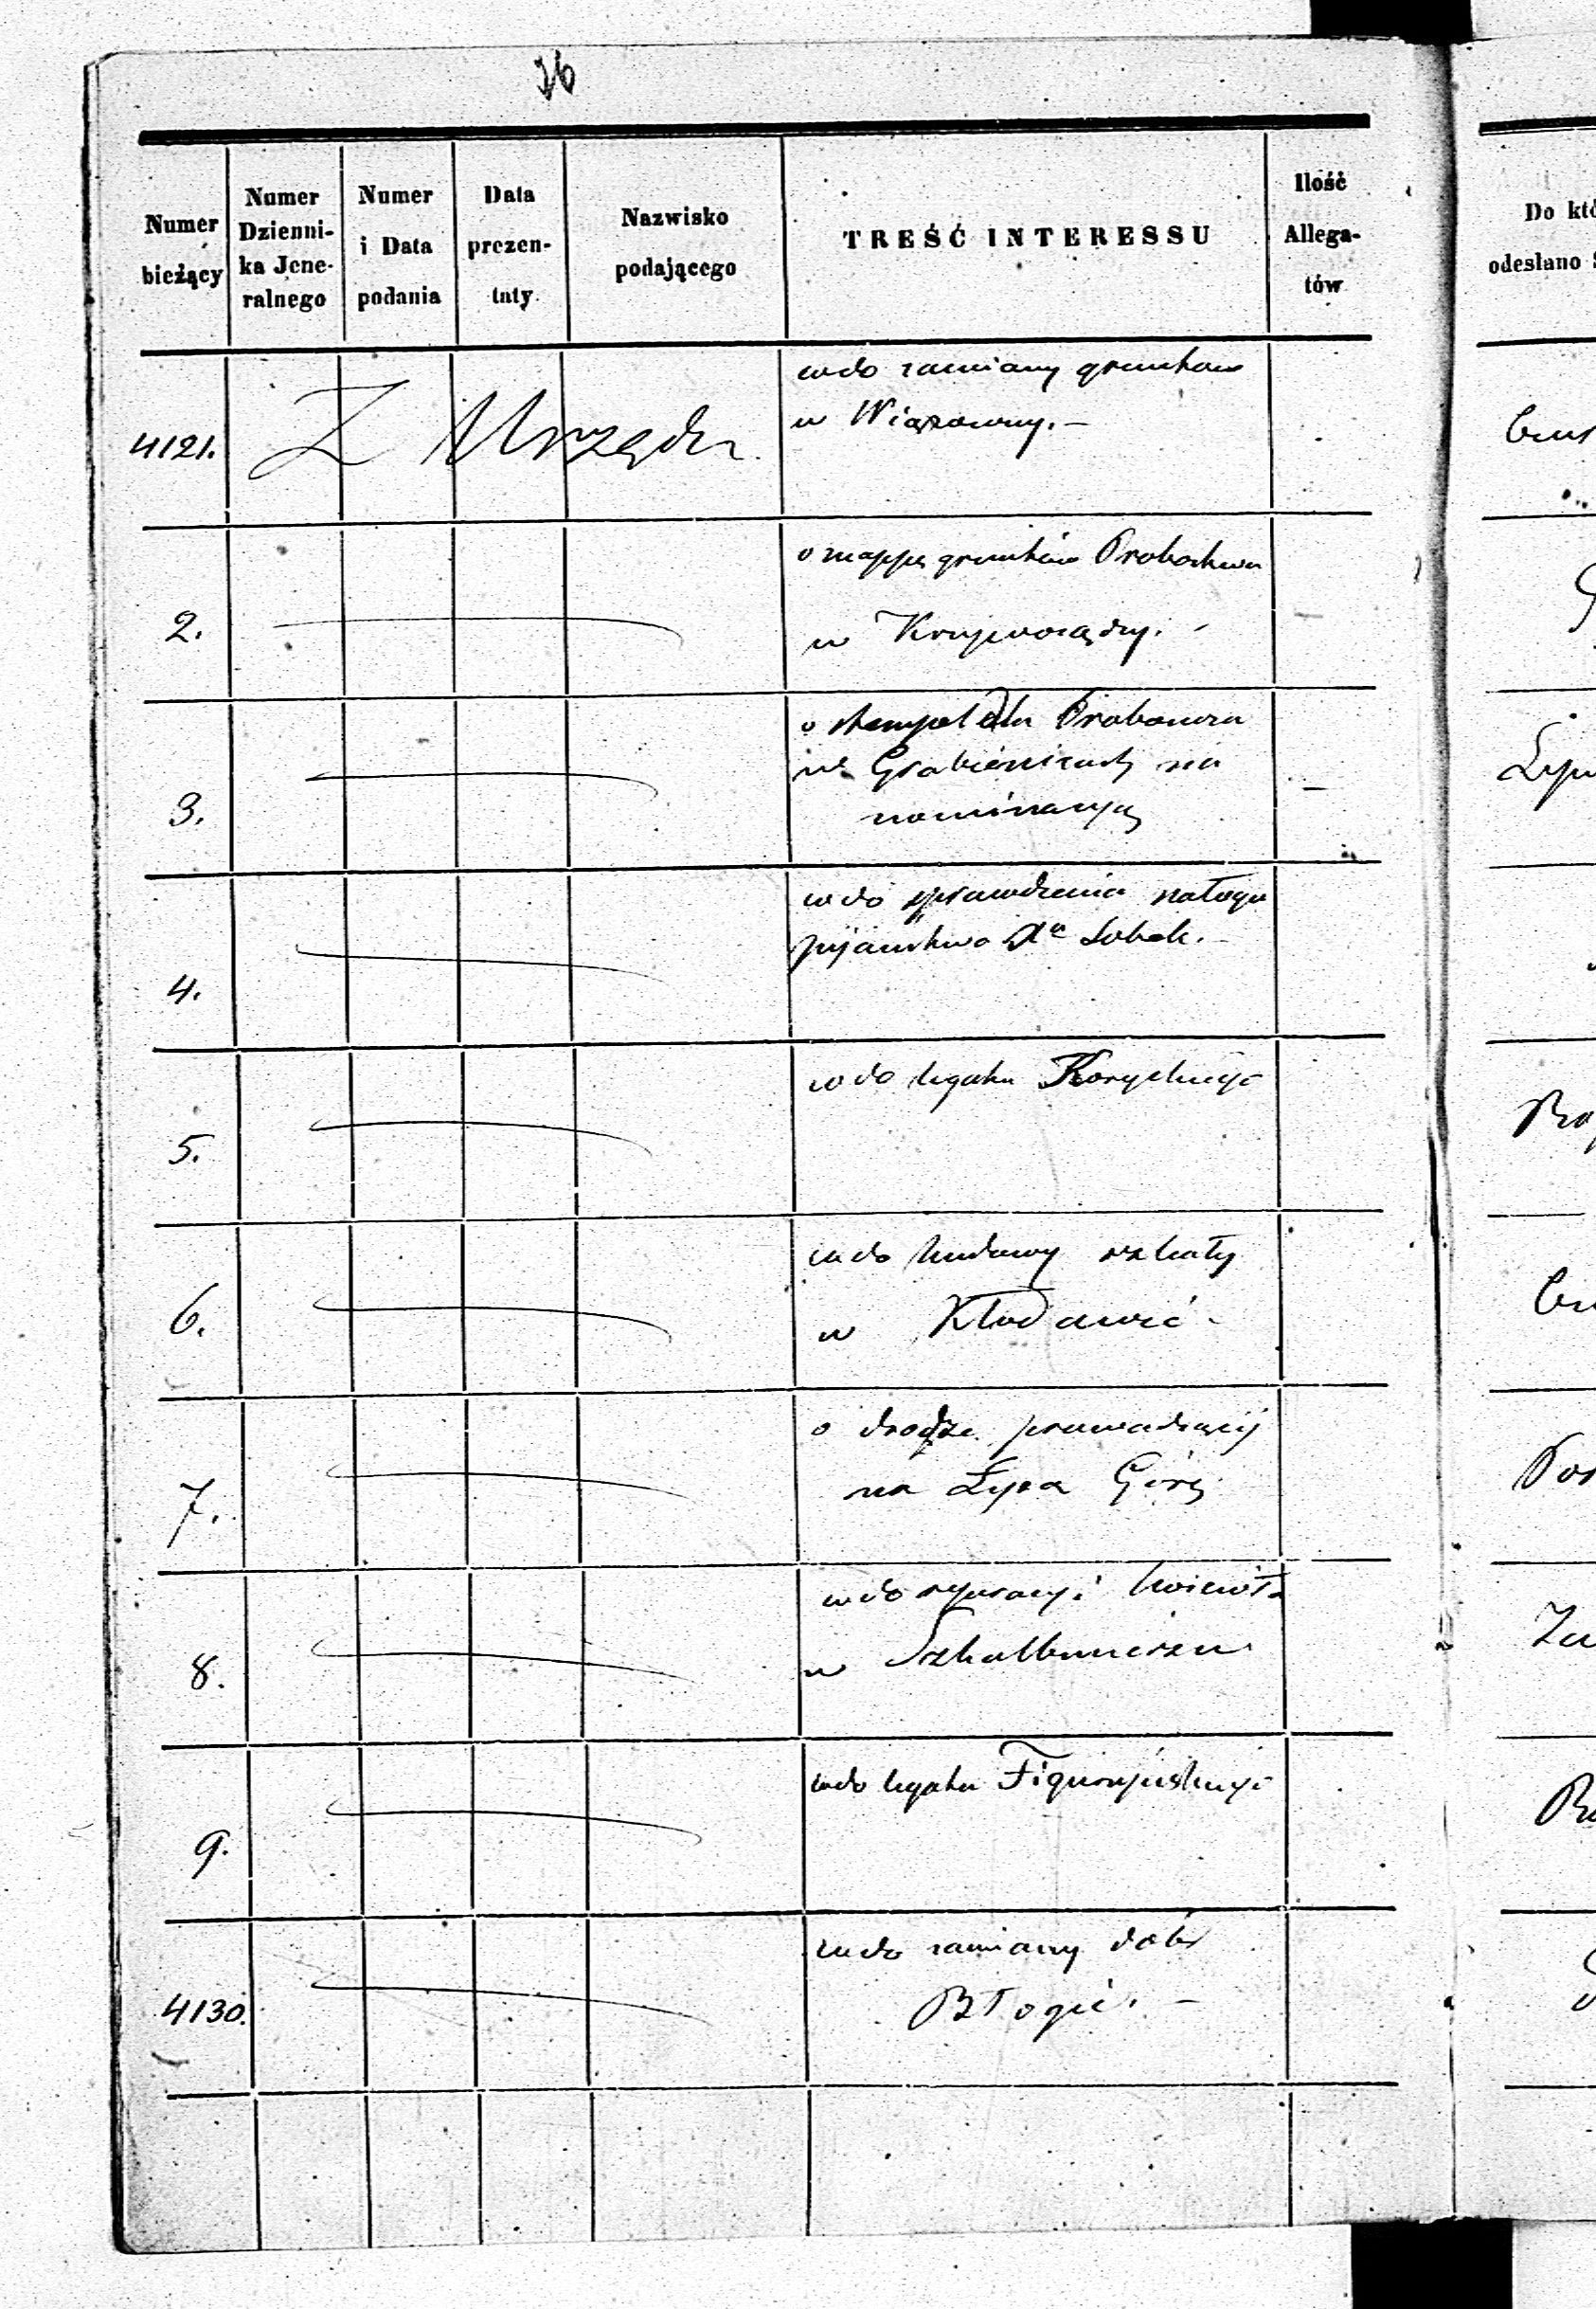 26
Numer bieżący
Numer Dzienni- ka Jene- ralnego
Numer i Data podania
Data prezen- taty
Nazwisko podającego
TREŚĆ INTERESSU
Ilość Allega- tów
4121. Z Urzędu
wdo zamiany gruntów
w Wiązowny. –
2. o mappę gruntów Probostwa
w Krzywosądzy. –
3. o stempel dla Proboszcza
w Grabienicach na
nominacyą
4. wdo sprawdzenia nałogu
pijaństwa Xa Sobek. –
5. wdo legatu
6. wdo budowy szkoły
w Kłodawie –
7. o drodze prowadzącej
na Łysą Górę
8. wdo reparacyi kościoła
w Szkalbmierzu
9. wdo legatu Figurzyńskiego
4130. wdo zamiany dóbr
Błogie. –
Do któ
odesłano S